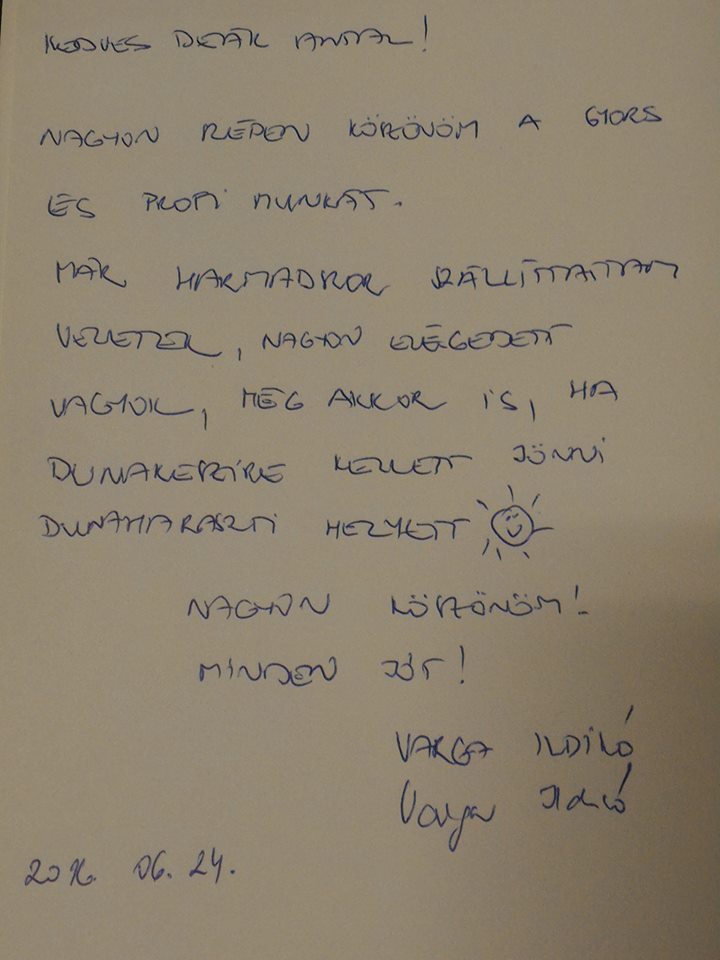 KEDVES DEÁK ANTAL!
NAGYON SZÉPEN KÖSZÖNÖM A GYORS
ÉS PROFI MUNKÁT.
MÁR HARMADSZOR SZÁLLÍTTATTAM
VELETEK, NAGYON ELÉGEDETT
VAGYOK, MÉG AKKOR IS, HA
DUNAKESZIRE KELLETT JÖNNI
DUNAHARASZTI HELYETT
NAGYON KÖSZÖNÖM!
MINDEN JÓT!
VARGA ILDIKÓ
Varga Ildikó
2016. 06. 24.